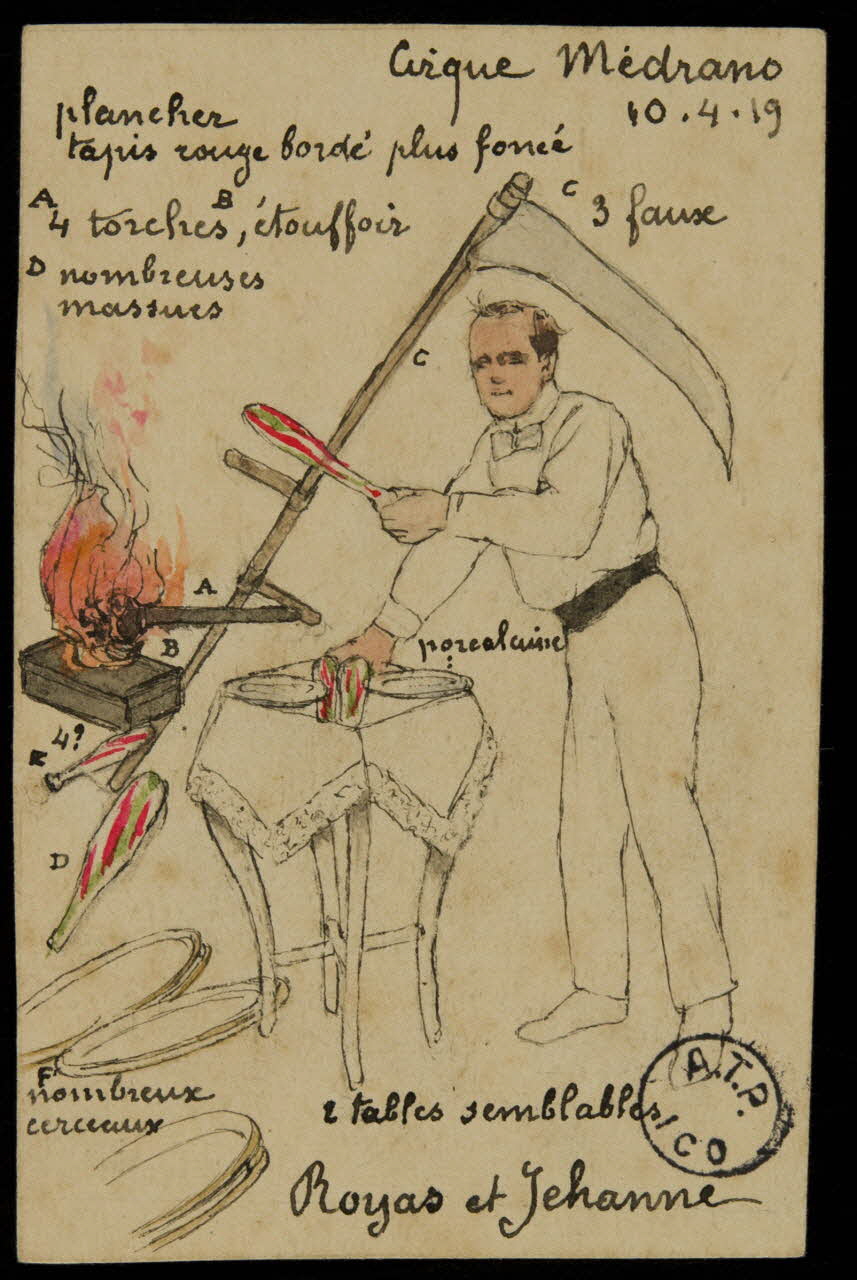 Cirque Médrano
10.4.19
plancher
tapis rouge bordé plus foncé
A B C
4 torches, étouffoir 3 faux
D nombreuses
massues
C
A
B
porcelaine
:
4?
E
D
F
nombreux
cerceaux
2 tables semblables
A.T.P.
ICO
Royas et Jehanne